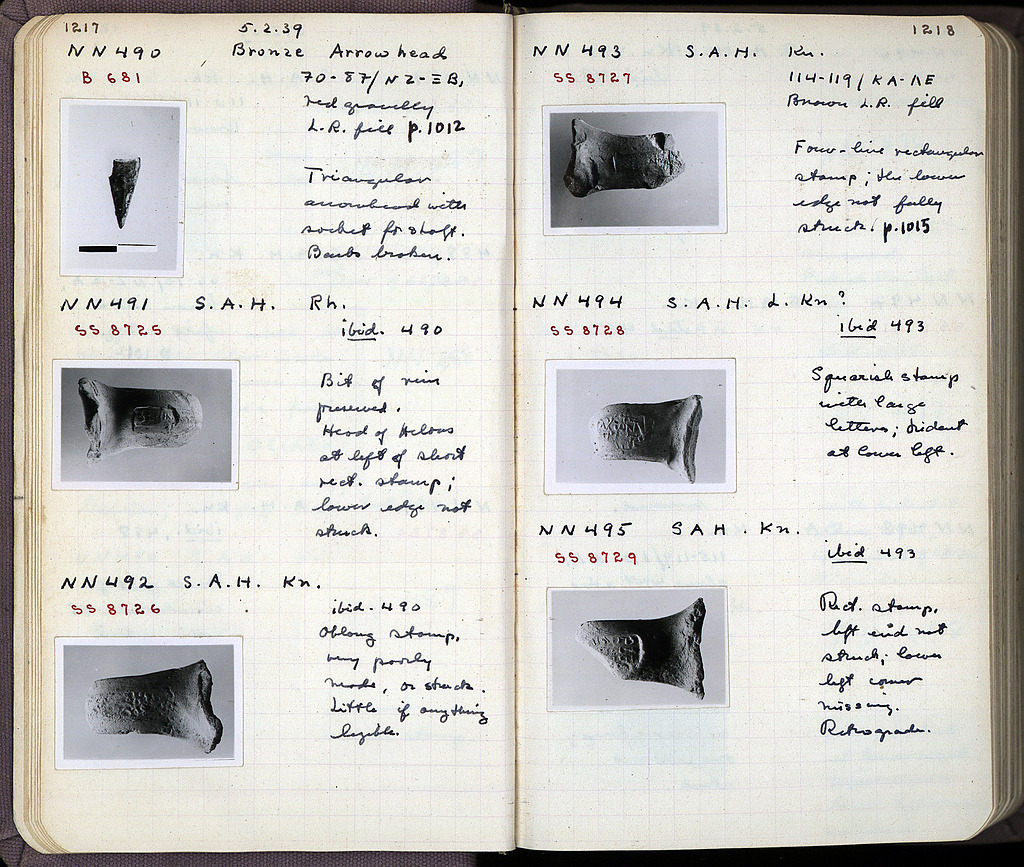 1217
5.2.39
NN490 Bronze Arrowhead
B 681
70-87/NZ-ΞB,
red gravelly
L.R. fill p.1012
Triangular
arrowhead with
socket for shaft.
Barbs broken.
NN491 S.A.H. Rh.
SS 8725
ibid. 490
Bit of rim
preserved.
Head of Helios
at left of short
rect. stamp;
lower edge not
struck.
NN492 S.A.H. Kn.
SS 8726
ibid. 490
Oblong stamp,
very poorly
made, or struck.
Little if anything
legible.
1218
NN493 S.A.H. Kn.
SS 8727
114-119/KA-ΛE
Brown L.R. fill
Four-line rectangular
stamp; the lower
edge not fully
struck. p.1015
NN494 S.A.H. L.Kn?
SS 8728
ibid 493
Squarish stamp
with large
letters; trident
at lower left.
NN495 SAH. Kn.
SS 8729
ibid 493
Rect. stamp,
left end not
struck; lower
left corner
missing.
Retrograde.